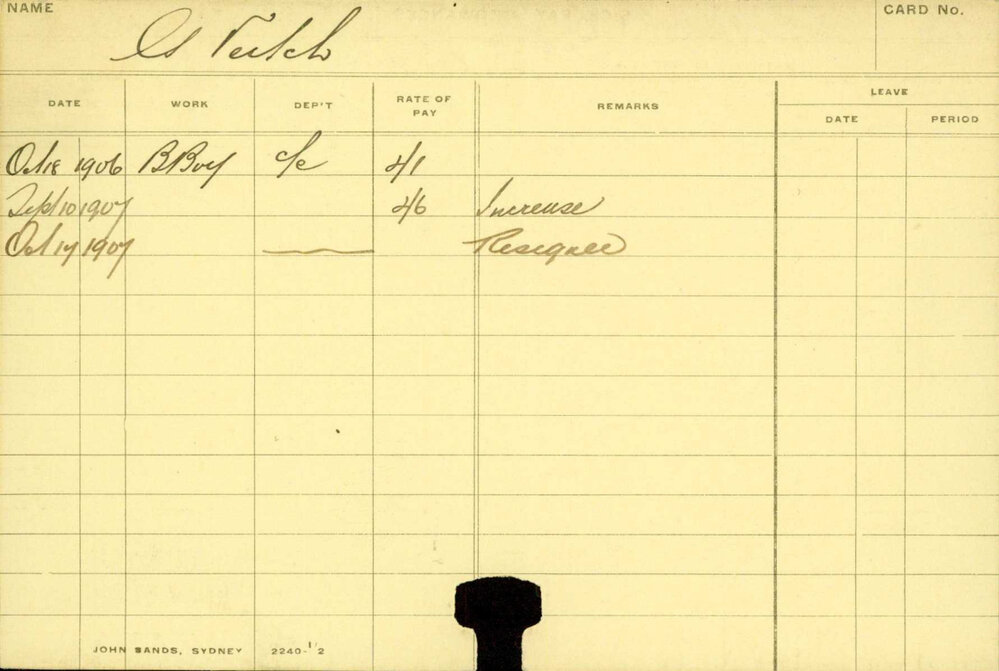 NAME
CARD No.
DATE WORK DEP'T RATE OF PAY REMARKS LEAVE
DATE PERIOD
Oct 18 1906 B Boy c/e 4/1
Sept 10 1907 4/6 Increase
Oct 17 1907 Resigned
JOHN SANDS, SYDNEY 2240-1/2